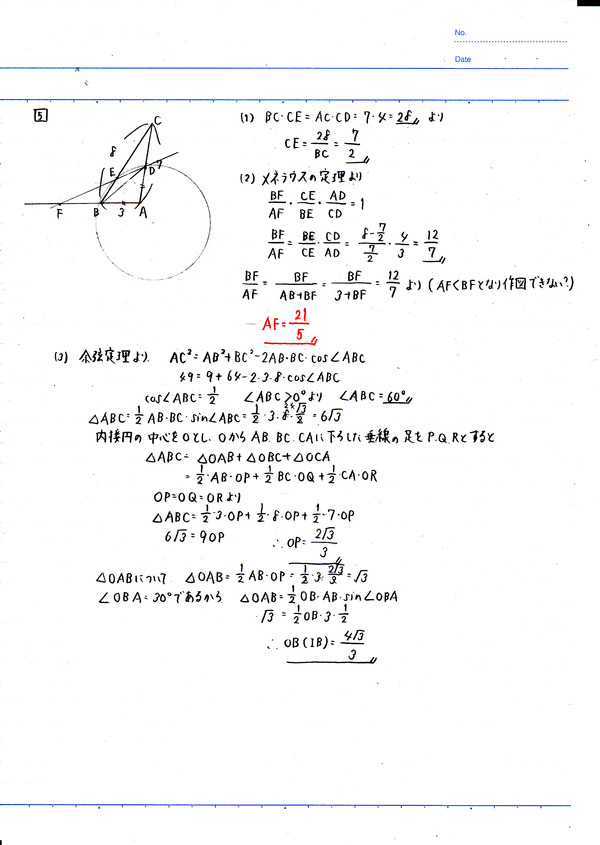 No.
Date
5
(1) BC・CE = AC・CD = 7・4 = 28 より
CE = 28/BC = 7/2
(2) メネラウスの定理より
BF/AF・CE/BE・AD/CD = 1
BF/AF = BE/CE・CD/AD = (8-7/2)/(7/2)・4/3 = 12/7
BF/AF = BF/(AB+BF) = BF/(3+BF) = 12/7 より (AF<BFとなり作図できない?)
AF = 21/5
C
8
E
D
7
F
B
3
A
(3) 余弦定理より AC² = AB² + BC² - 2AB・BC・cos∠ABC
49 = 9 + 64 - 2・3・8・cos∠ABC
cos∠ABC = 1/2 ∠ABC > 0°より ∠ABC = 60°
△ABC = 1/2 AB・BC・sin∠ABC = 1/2・3・8・√3/2 = 6√3
内接円の中心をOとし、OからAB.BC.CAに下ろした垂線の足をP.Q.Rとすると
△ABC = △OAB + △OBC + △OCA
= 1/2・AB・OP + 1/2 BC・OQ + 1/2・CA・OR
OP=OQ=ORより
△ABC = 1/2・3・OP + 1/2・8・OP + 1/2・7・OP
6√3 = 9OP ∴OP = 2√3/3
△OABについて △OAB = 1/2 AB・OP = 1/2・3・2√3/3 = √3
∠OBA = 30°であるから △OAB = 1/2 OB・AB・sin∠OBA
√3 = 1/2 OB・3・1/2
∴OB(IB) = 4√3/3